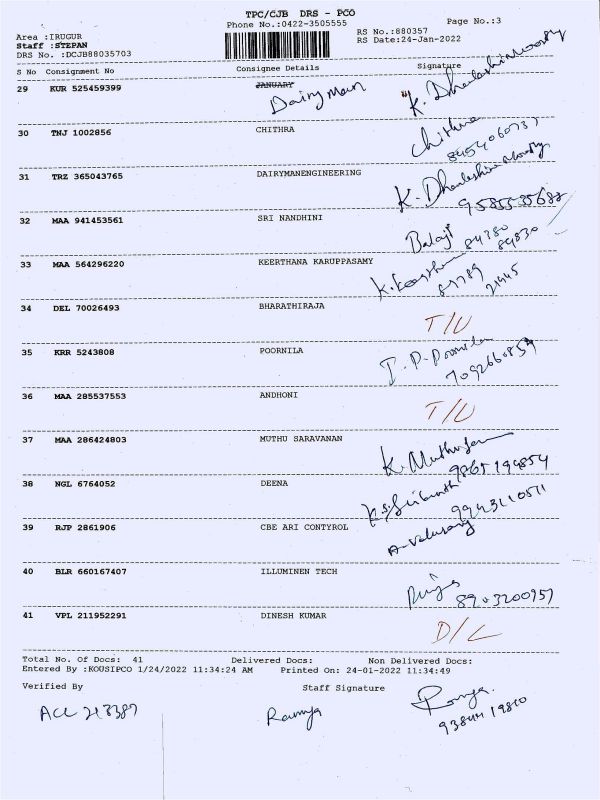 TPC/CJB DRS - PCO
Phone No.:0422-3505555
Page No.:3
Area :IRUGUR
Staff :STEPAN
DRS No. :DCJB88035703
RS No.:880357
RS Date:24-Jan-2022
S No Consignment No Consignee Details Signature
29 KUR 525459399 JANUARY Dairyman K. Dhanalashinmoorthy
30 TNJ 1002856 CHITHRA Chithra
31 TRZ 365043765 DAIRYMANENGINEERING
9585535688
32 MAA 941453561 SRI NANDHINI Balaji
33 MAA 564296220 KEERTHANA KARUPPASAMY
34 DEL 70026493 BHARATHIRAJA T/U
35 KRR 5243808 POORNILA
7092660859
36 MAA 285537553 ANDHONI T/U
37 MAA 286424803 MUTHU SARAVANAN
9865194854
38 NGL 6764052 DEENA
9943110511
39 RJP 2861906 CBE ARI CONTYROL
40 BLR 660167407 ILLUMINEN TECH
8903200957
41 VPL 211952291 DINESH KUMAR D/L
Total No. Of Docs: 41 Delivered Docs: Non Delivered Docs:
Entered By :KOUSIPCO 1/24/2022 11:34:24 AM Printed On: 24-01-2022 11:34:49
Verified By Staff Signature
ACC 213387 Ramya Ramya.